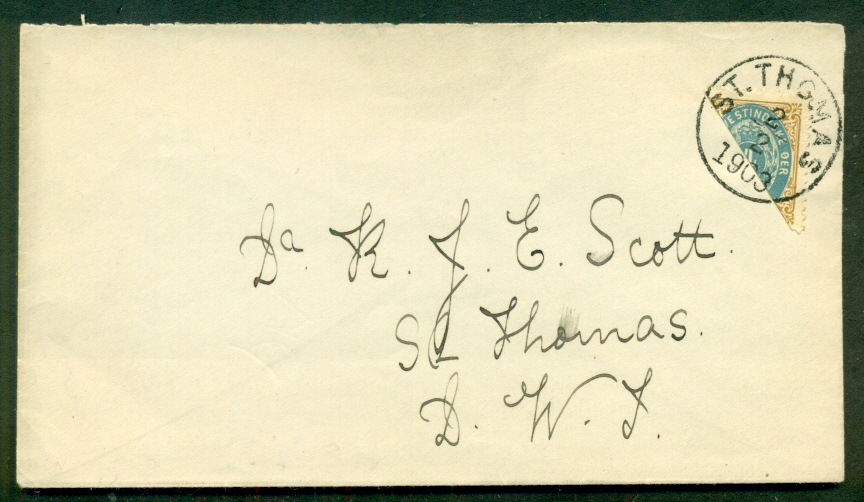 ST. THOMAS
2
2
1903
VESTINDISKE ØER
4
Da. K. J. E. Scott.
St Thomas.
D. W. I.